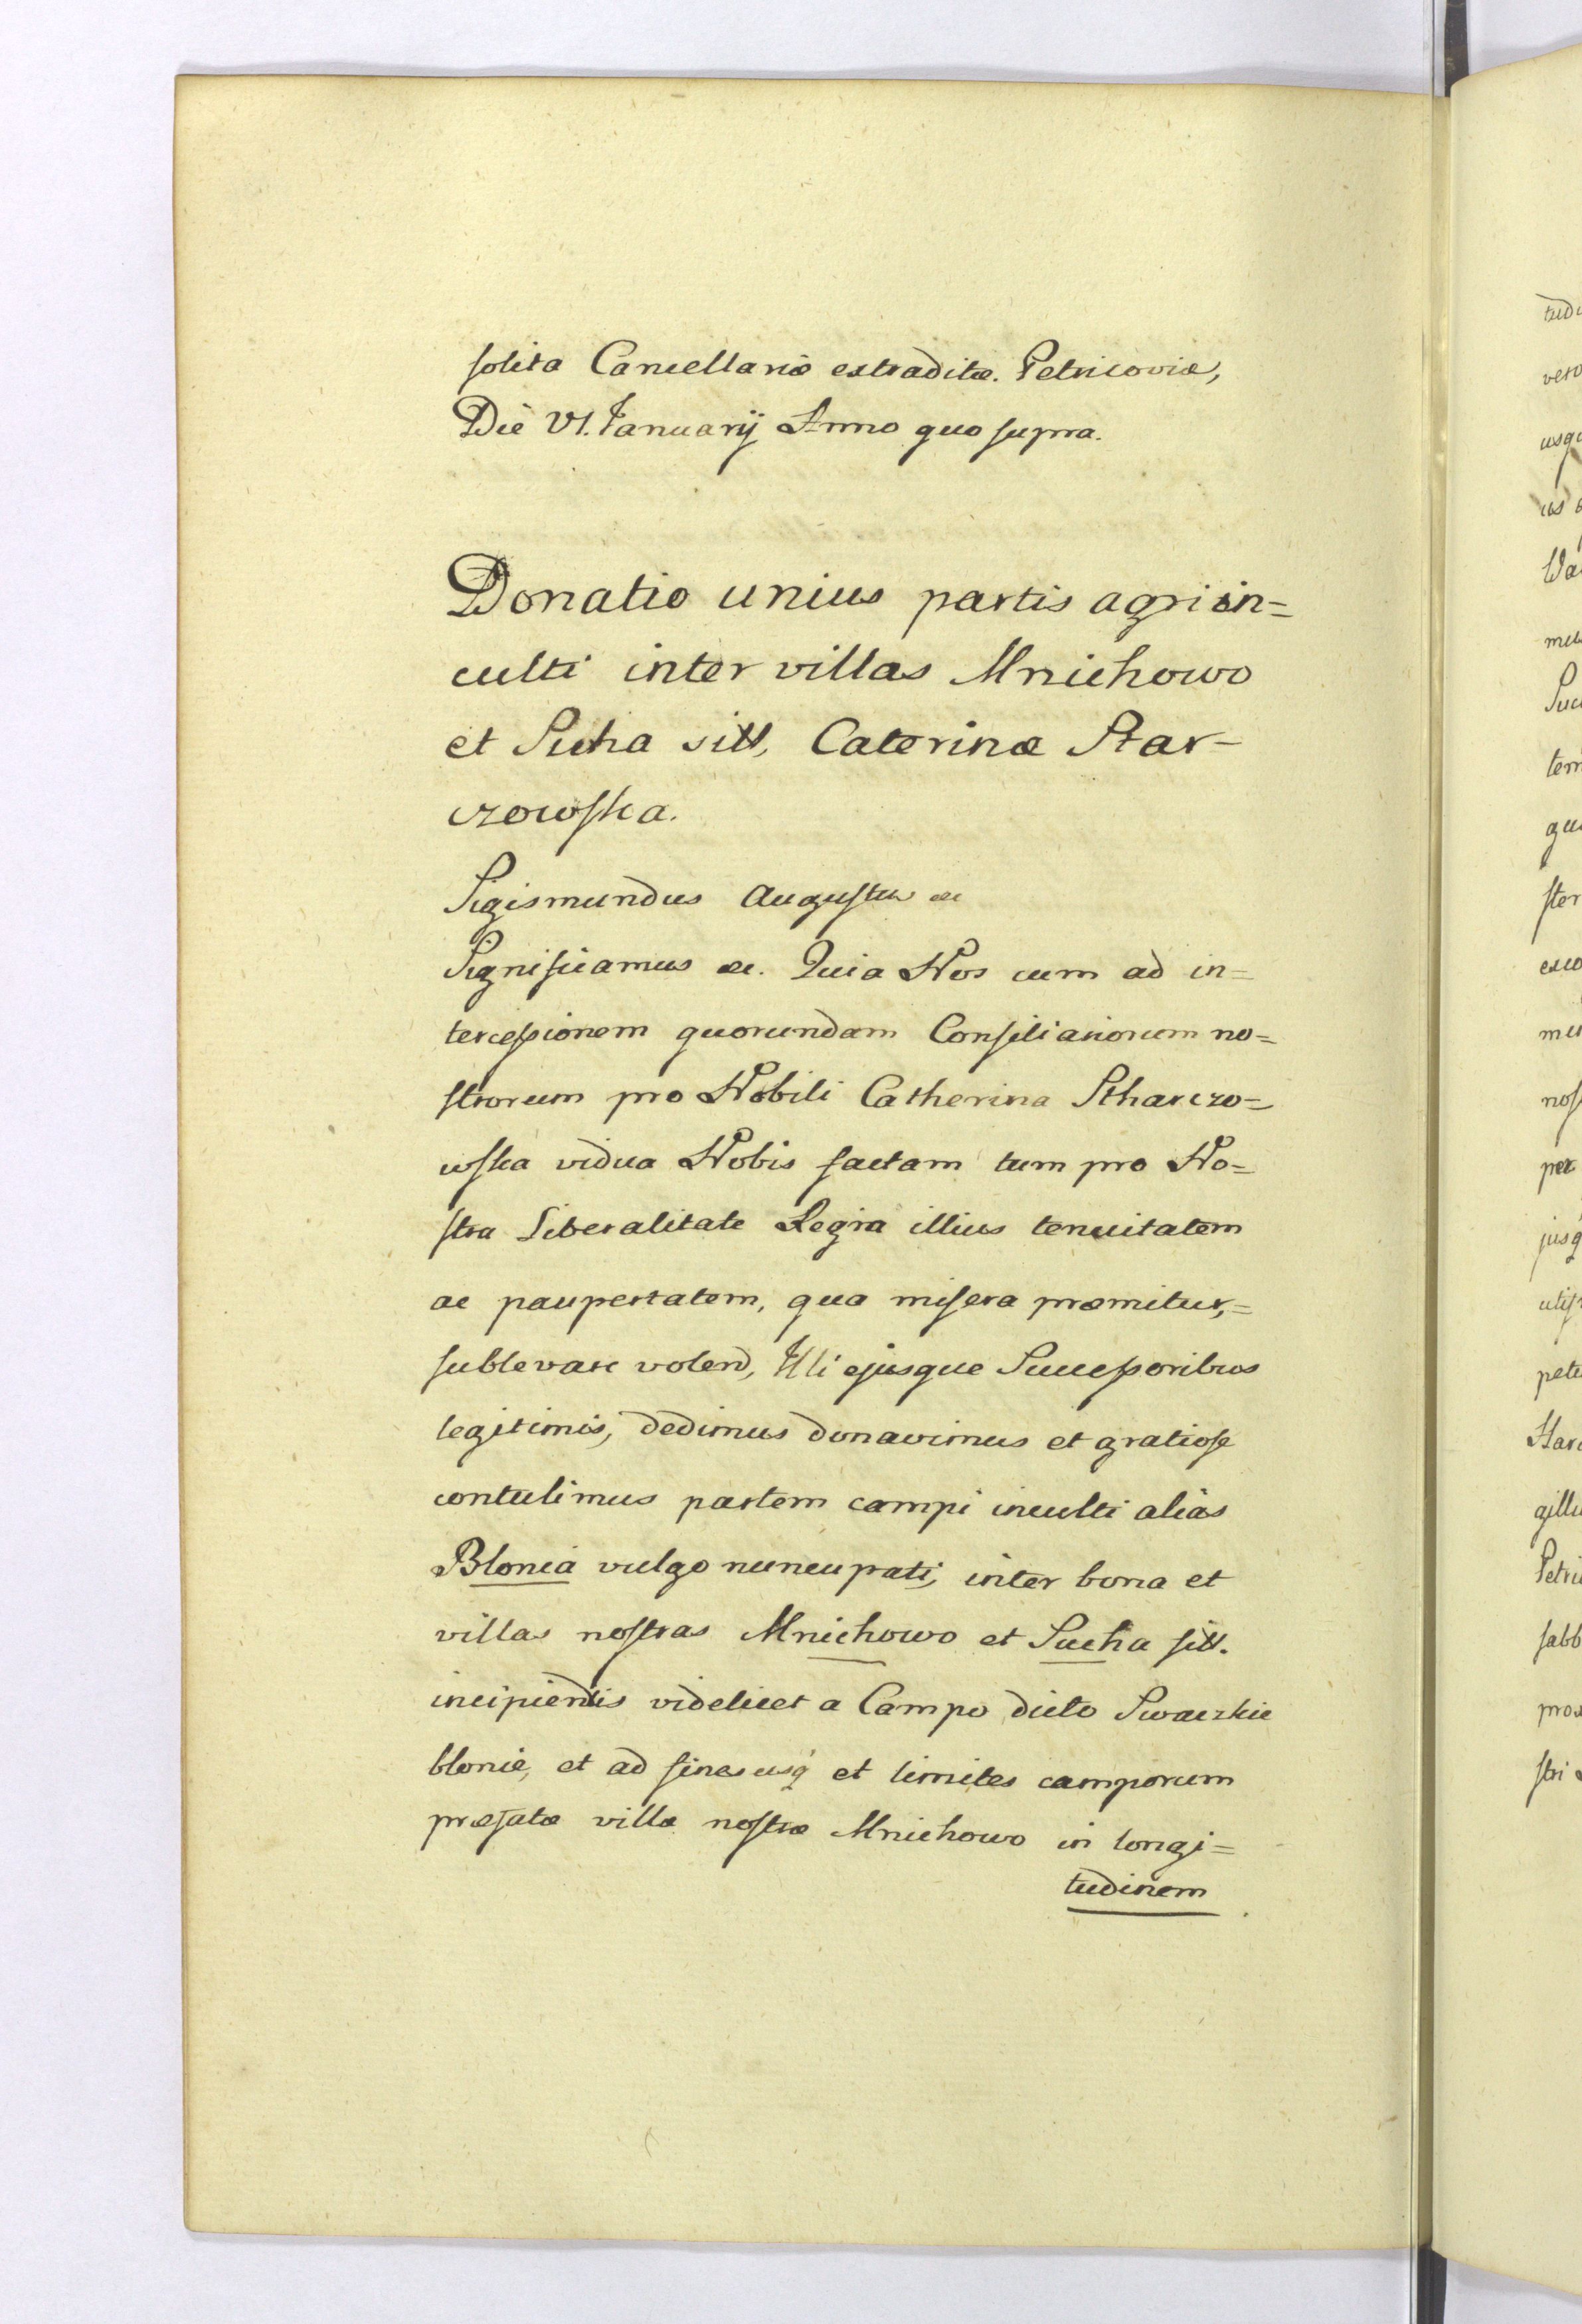 solita Cancellariæ extraditæ. Petricoviæ,
Die VI. Januarij Anno quo supra.
Donatio unius partis agri in=
culti inter villas Mnichowo
et Sucha sitt, Caterinæ Star-
czowska.
Sigismundus Augustus &c
Significamus &c. Quia Nos cum ad in=
tercessionem quorundam Consiliariorum no=
strorum pro Nobili Catherina Stharczo=
wska vidua Nobis factam tum pro No=
stra Liberalitate Regia illius tenuitatem
ac paupertatem, qua misera præmitur,=
sublevare volend, Illi ejusque Successoribus
legitimis, dedimus donavimus et gratiose
contulimus partem campi inculti alias
Blonia vulgo nuncupati, inter bona et
villas nostras Mnichowo et Sucha sitt.
incipientis videlicet a Campo dicto Swaczkie
blonie, et ad fines usq́ et limites camporum
præfatæ villæ nostræ Mnichowo in longi=
tudinem